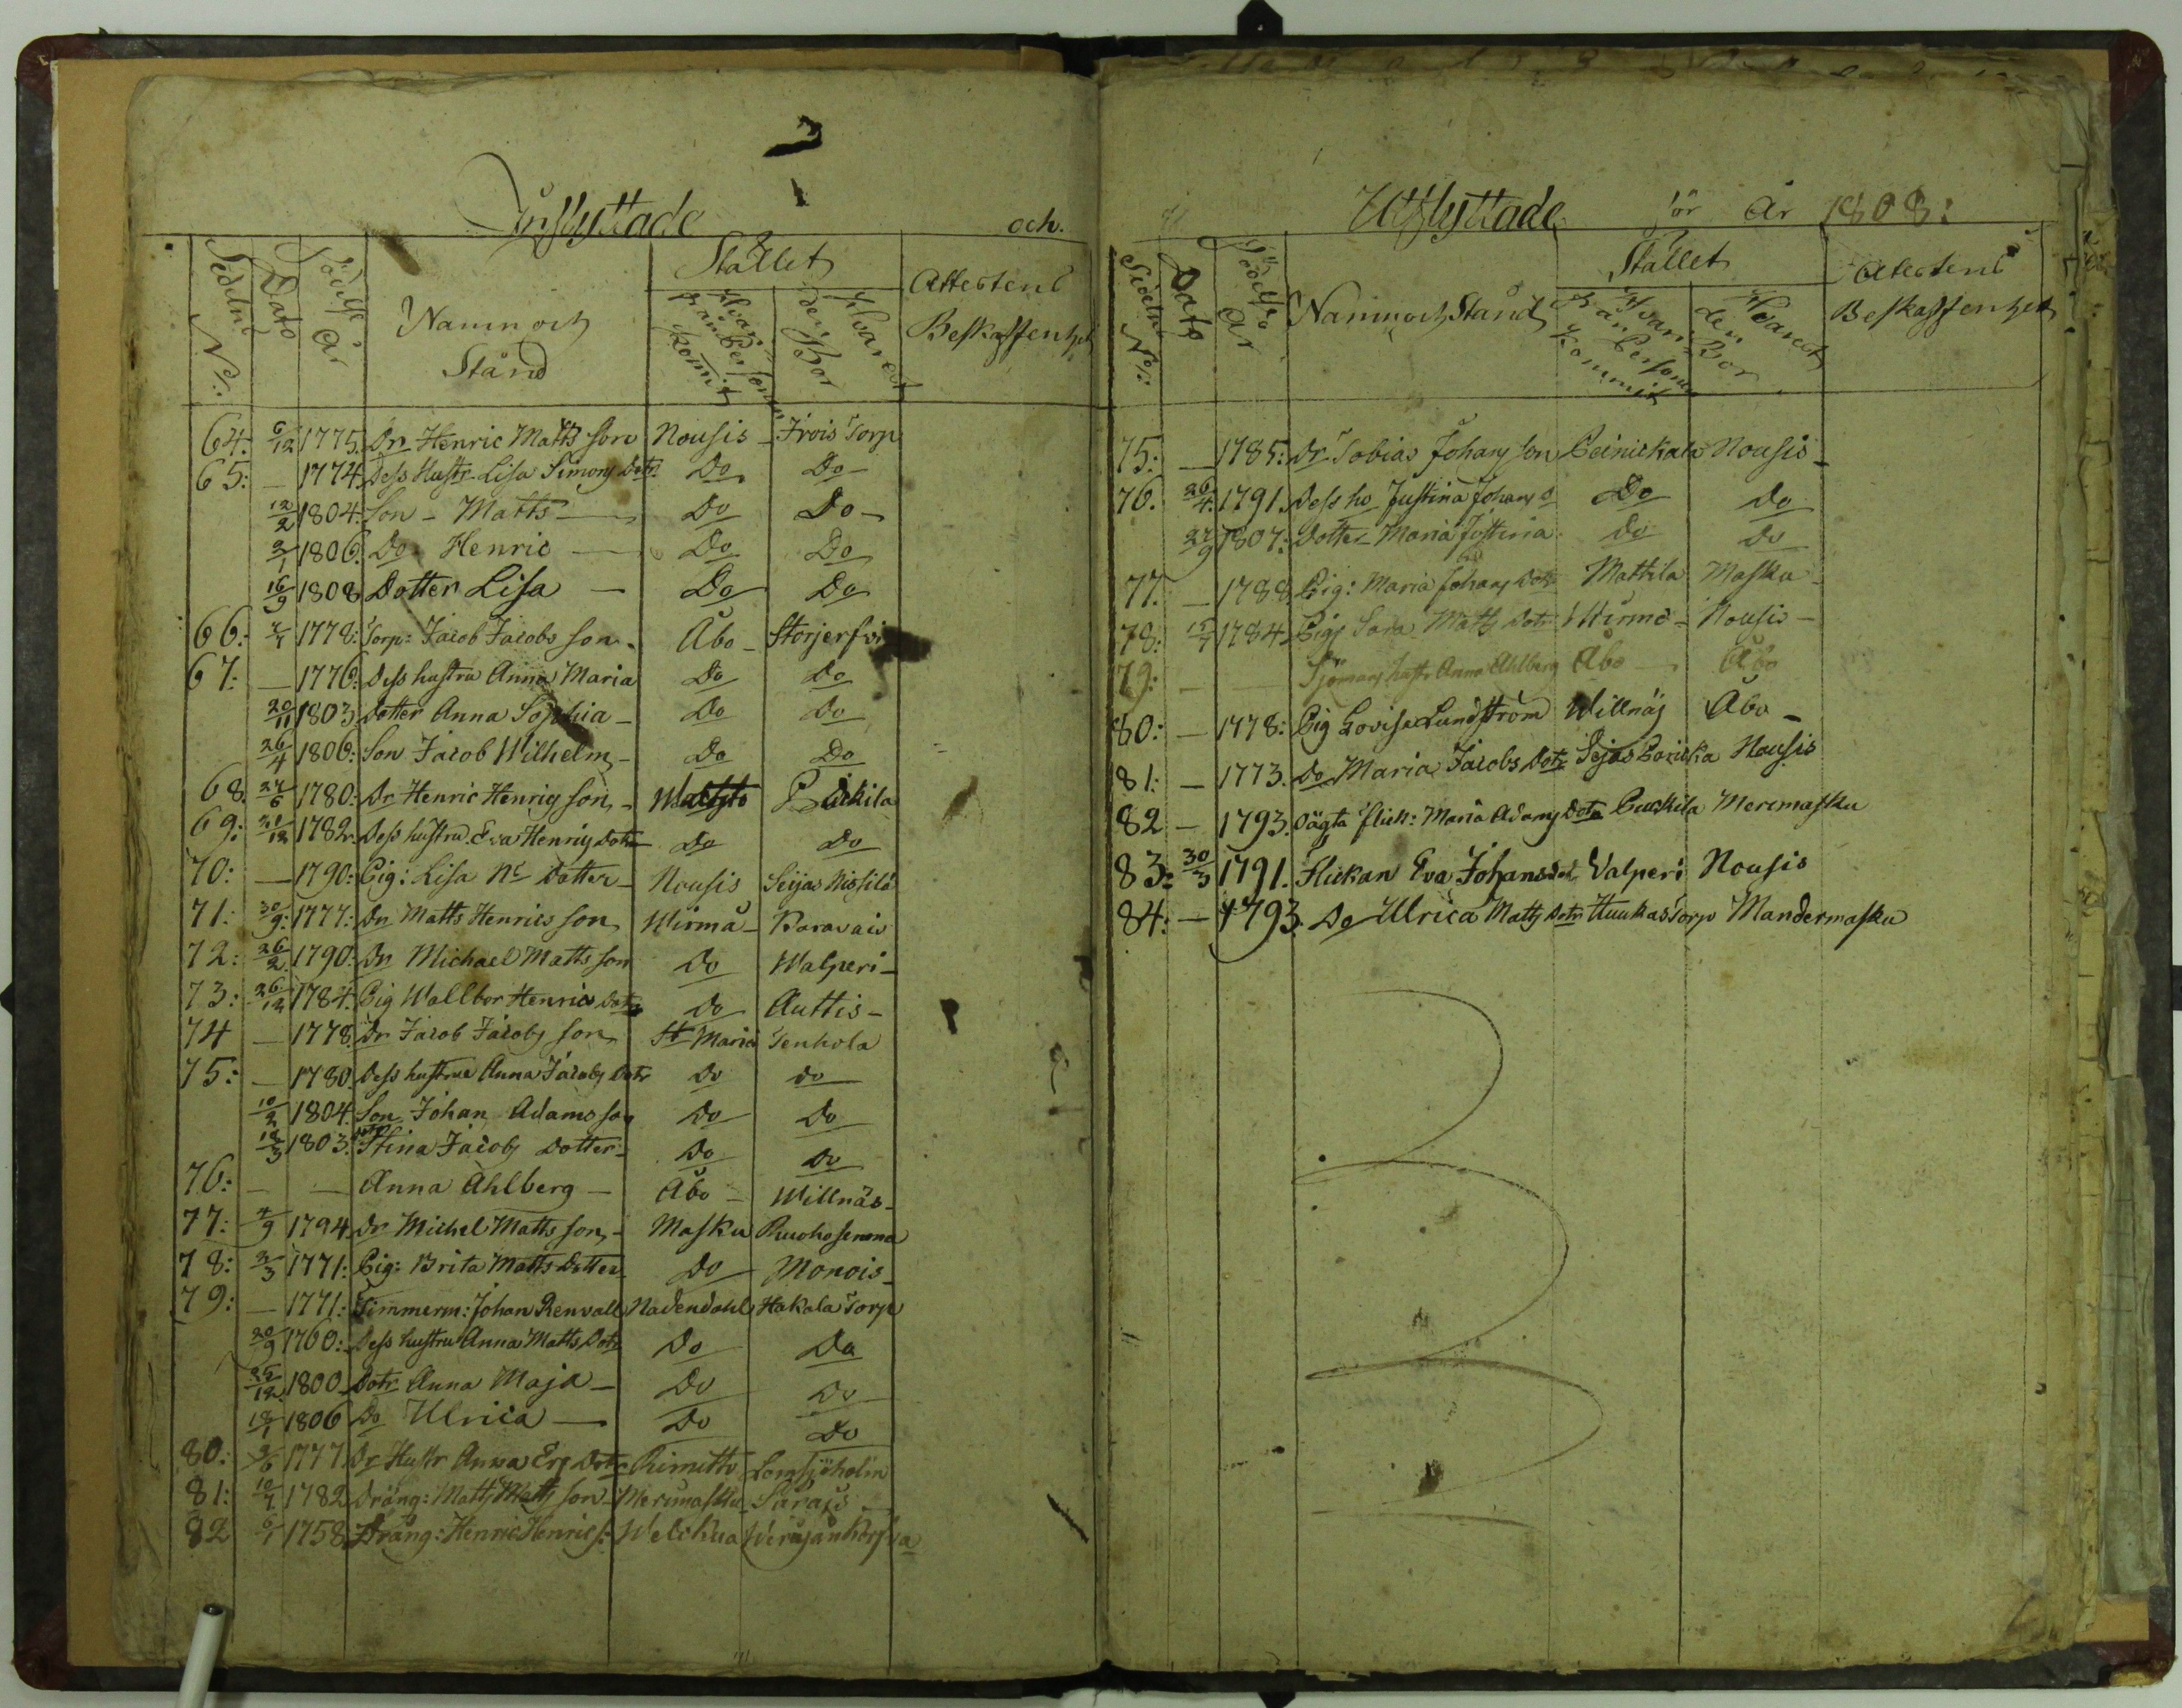 Inflyttade och.
Sedelns No: Dato Födelse År Namn och Stånd Stället Hvarifrån Personen kommit Hvarest den Bor Attestens Beskaffenhet
64. 6/12 1775. Dr Henric Matts son Nousis - Frois Torp
65: - 1774. Dess Hustr. Lisa Simons Dotr Do Do -
12/2 1804. Son - Matts - Do Do -
3/1 1806. Do Henric - Do Do
16/9 1808 Dotter Lisa - Do Do
66: 1778: Torp: Jacob Jacobs son. Åbo - Storjerfvi
67: - 1776: Dess hustru Anna Maria Do Do
20/11 1803 dotter Anna Sophia - Do Do
26/4 1806: Son Jacob Wilhelm - Do Do
68. 27/6 1780: Dr Henric Henrics son -
69: 21/12 1782. Dess hustru Eva Henrics Dotr Do Do
70: - 1790: Pig: Lisa Nc dotter - Nousis Seijas Nissilä
71: 30/9: 1777: Dr Matts Henrics son Wirmå - Karavais
72: 26/2 1790: Dr Michael Matts son Do Walperi -
73: 26/12 1784: Pig Wallbor Henrics Dotr Do Auttis -
74 - 1778. Dr Jacob Jacobs son St Maria Tenhola
75: - 1780. Dess hustru Anna Jacobs Dotr Do do
10/2 1804. Son Johan Adams son Do Do
18/3 1803. Stina Jacobs Dotter - Do Do
76: - - Anna Ahlberg - Åbo - Willnäs -
77: 4/9 1794. Dr Michel Matts son - Masku Ruohosenma
78: 3/3 1771: Pig: Brita Matts Dotter Do Monois -
79: - 1771: Timmerm: Johan Renvall Nadendahl Hakala Torp
20/9 1760: Dess hustru Anna Matts Dotr Do Do
25/12 1800 Dotr Anna Maja - Do Do
18/1 1806 Do Ulrica - Do Do
80: 1777 Dr Hustr Anna Ers Dotr Rimitto Lomsjöholm
81: 10/7 1782 Dräng: Matts Matts son Merimasku Särais
82 6/1 1758 Dräng: Henric Henrics: Welckua
Utflyttade för År 1808:
Sedelns No: Dato Födelse År Namn och Stånd Stället Hvarifrån Personen kommit Hvarest den Bor Attestens Beskaffenhet
75: - 1785: Dr Tobias Johans son Peinickala Nousis -
76. 26/4. 1791. Dess hu Justina Johans D Do Do
27/9 1807: Dotter Maria Justina Do Do
77. - 1788. Pig: Maria Johans Dotr Mattila Masku
78: 15/7 1784. Pig Sara Matts Dotr Wirmo - Nousis -
79: - - Sjömans hustr Anna Ahlberg Åbo - Åbo
80: - 1778: Pig Lovisa Lundström Willnäs Åbo -
81: - 1773. Do Maria Jacobs Dotr Seijas Nousis
82 - 1793. Oägta flick: Maria Adams Dotr Puckila Merimasku
83: 30/3 1791. Flickan Eva Johans dot Valperi Nousis
84: - 1793. Do Ulrica Matts Dotr Huukas Torp Mandermasku